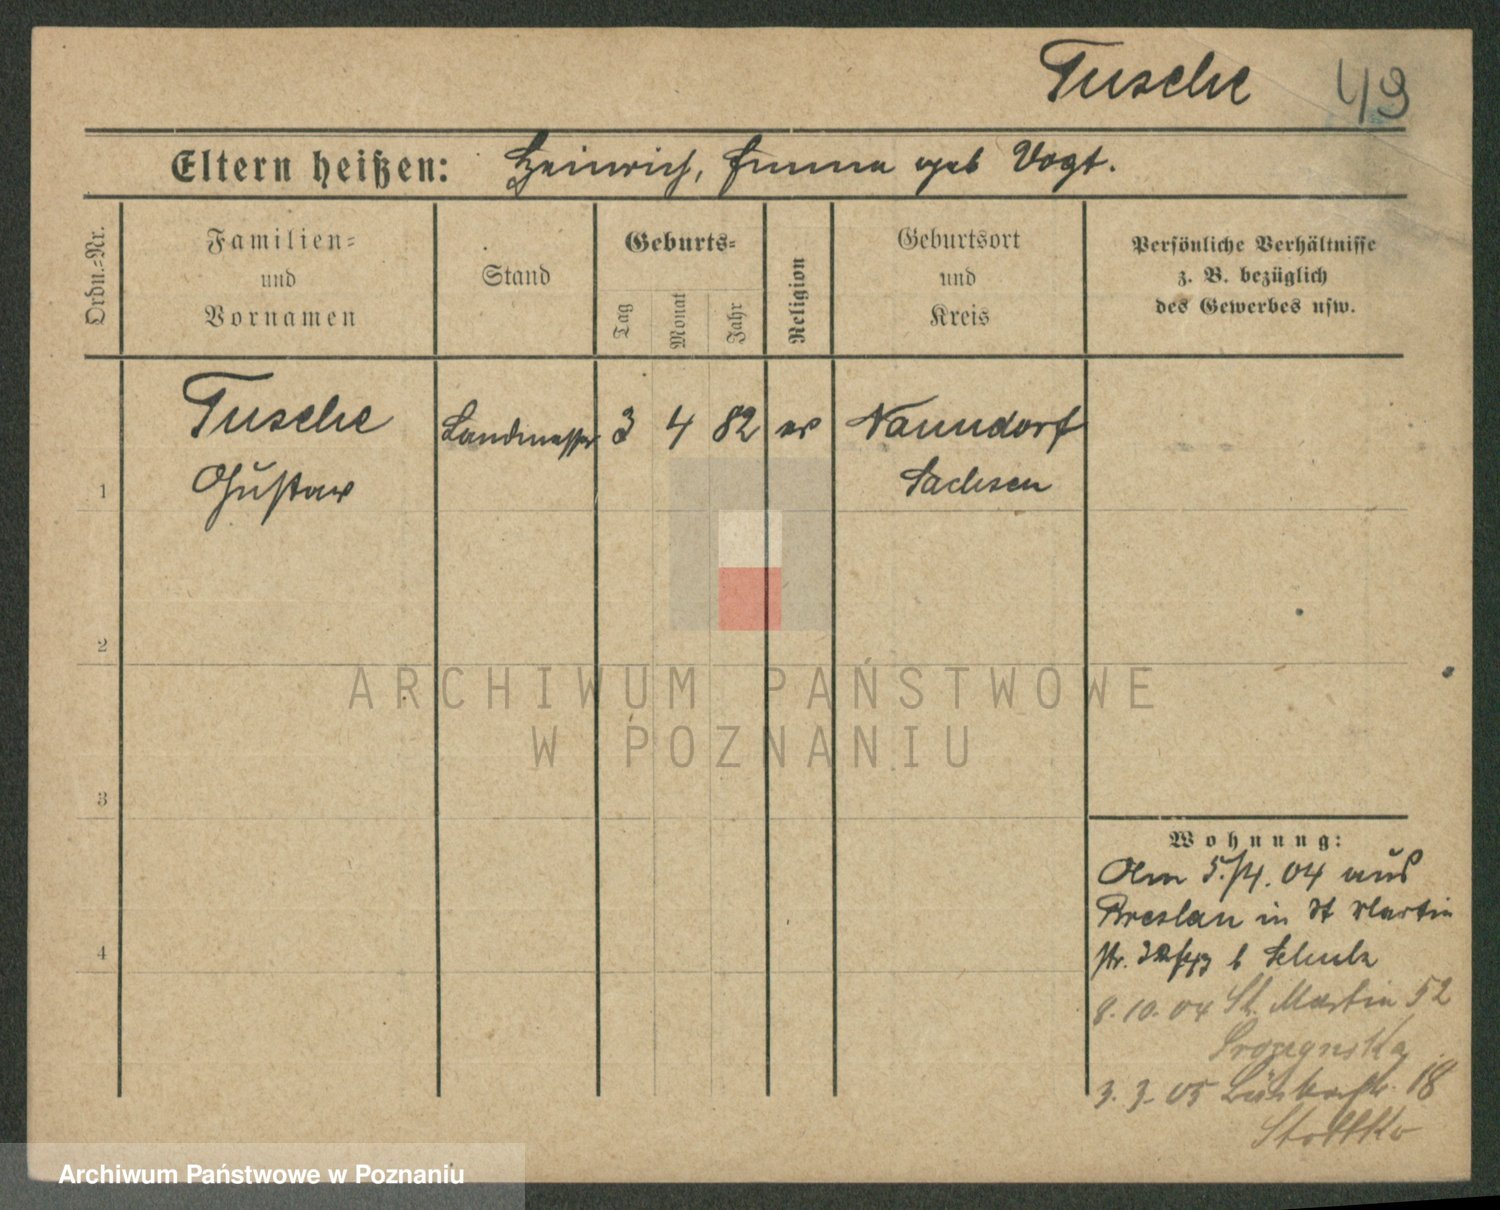 Tusche 49
Eltern heißen: Heinrich, Emma geb Vogt.
Ordn.-Nr.
Familien- und Vornamen
Stand
Geburts-
Tag Monat Jahr
Religion
Geburtsort und Kreis
Persönliche Verhältnisse
z. B. bezüglich
des Gewerbes usw.
Tusche Landmesser 3 4 82 ev Naundorf
1 Gustav Sachsen
2
3
4
Wohnung:
Am 5./4. 04 aus
Breslau in St Martin
str. b Schulz
8.10.04 St. Martin 52
3.3.05 18
ARCHIWUM PAŃSTWOWE
W POZNANIU
Archiwum Państwowe w Poznaniu